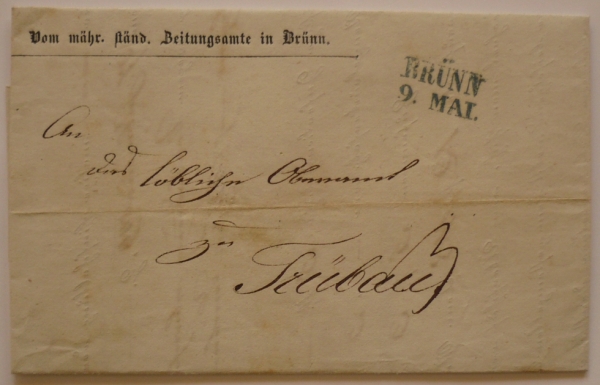 Vom mähr. ständ. Zeitungsamte in Brünn.
BRÜNN
9. MAI.
An
das löbliche Oberamt
zu
Trübau